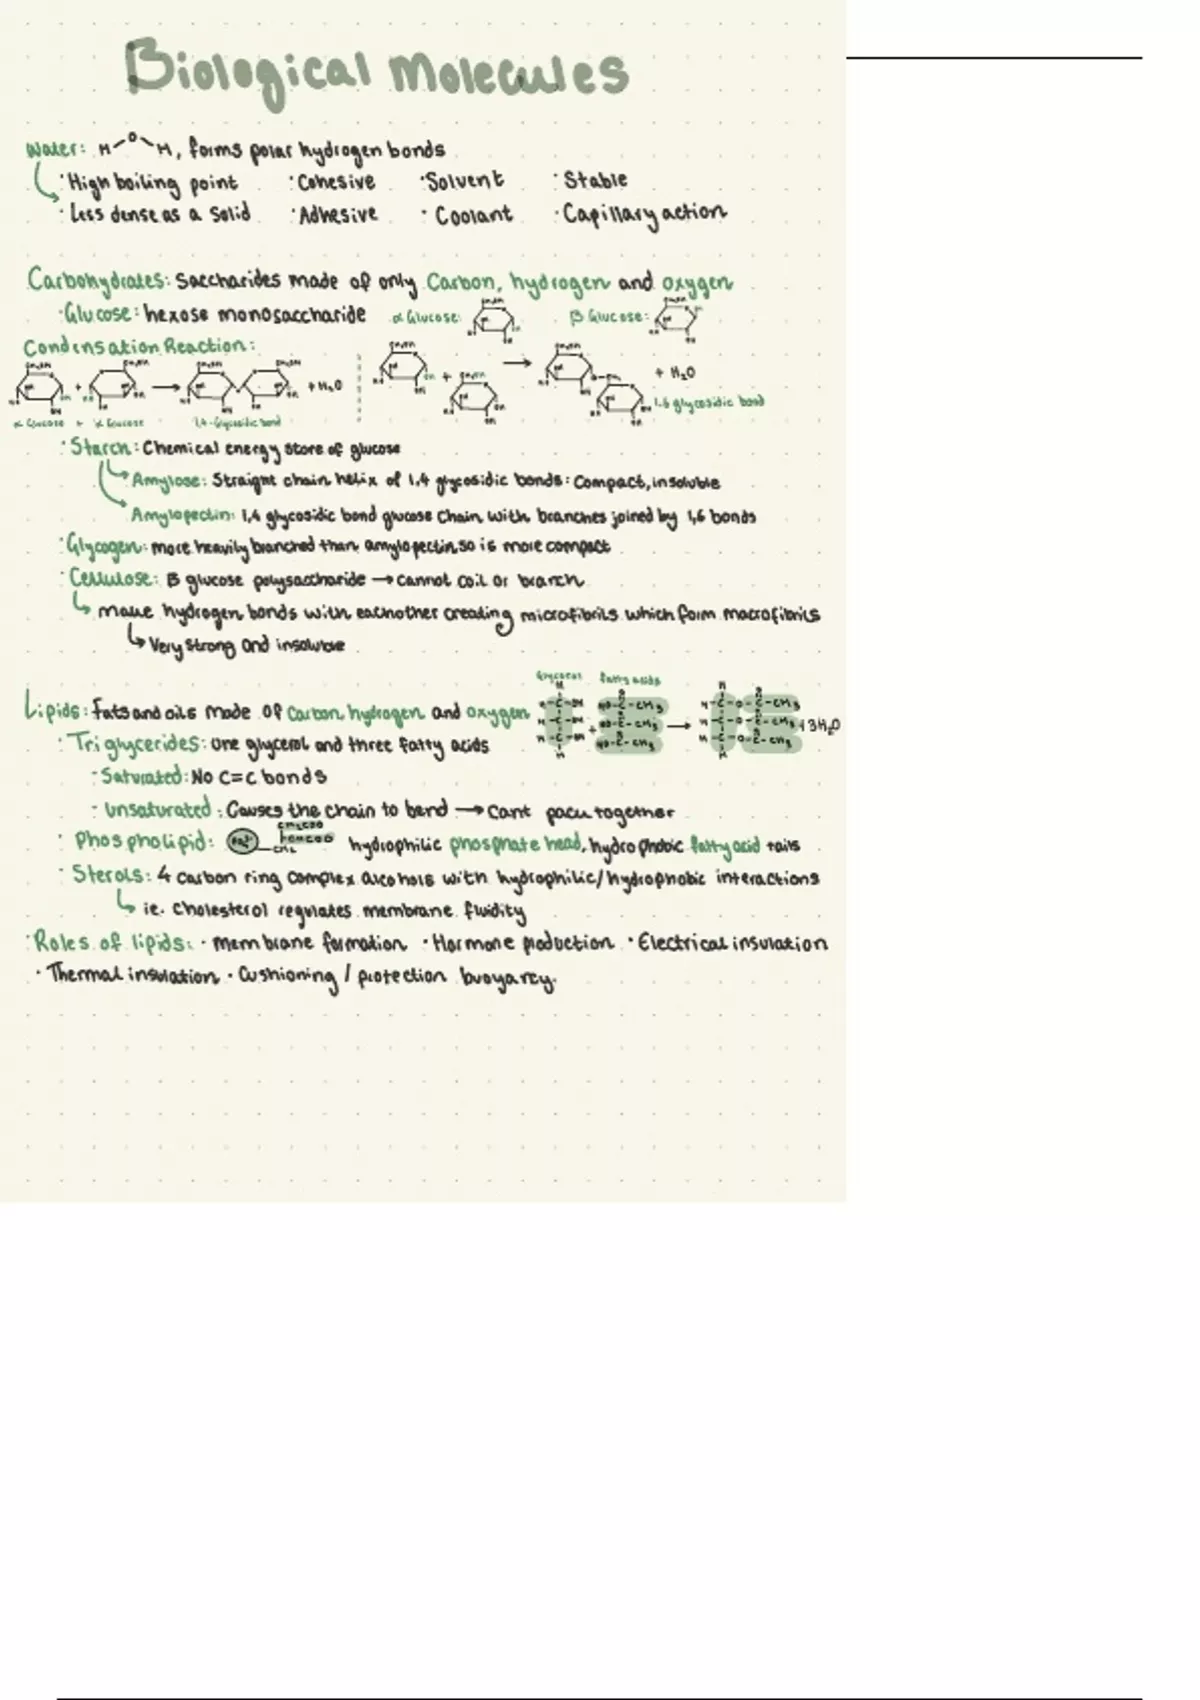 Biological Molecules
Water: H O H, forms polar hydrogen bonds
· High boiling point · Cohesive · Solvent · Stable
· Less dense as a solid · Adhesive · Coolant · Capillary action
Carbohydrates: Saccharides made of only Carbon, hydrogen and oxygen
· Glucose: hexose monosaccharide α Glucose: β Glucose:
Condensation Reaction:
+ → + H₂O + → + H₂O
α Glucose + α Glucose 1,4-Glycosidic bond 1,6 glycosidic bond
· Starch: Chemical energy store of glucose
Amylose: Straight chain helix of 1,4 glycosidic bonds: Compact, insoluble
Amylopectin: 1,4 glycosidic bond glucose chain with branches joined by 1,6 bonds
· Glycogen: more heavily branched than amylopectin so is more compact
· Cellulose: B glucose polysaccharide → cannot coil or branch
↳ make hydrogen bonds with eachother creating microfibrils which form macrofibrils
↳ Very strong and insoluble
Glycerol fatty acids
Lipids: Fats and oils made of carbon, hydrogen and oxygen
+ → + 3H₂O
· Triglycerides: one glycerol and three fatty acids
- Saturated: No C=C bonds
- Unsaturated: Causes the chain to bend → Cant pack together
· Phospholipid: hydrophilic phosphate head, hydrophobic fatty acid tails
· Sterols: 4 carbon ring complex alcohols with hydrophilic/hydrophobic interactions
↳ ie. Cholesterol regulates membrane fluidity
· Roles of lipids: · Membrane formation · Hormone production · Electrical insulation
· Thermal insulation · Cushioning / protection buoyancy.